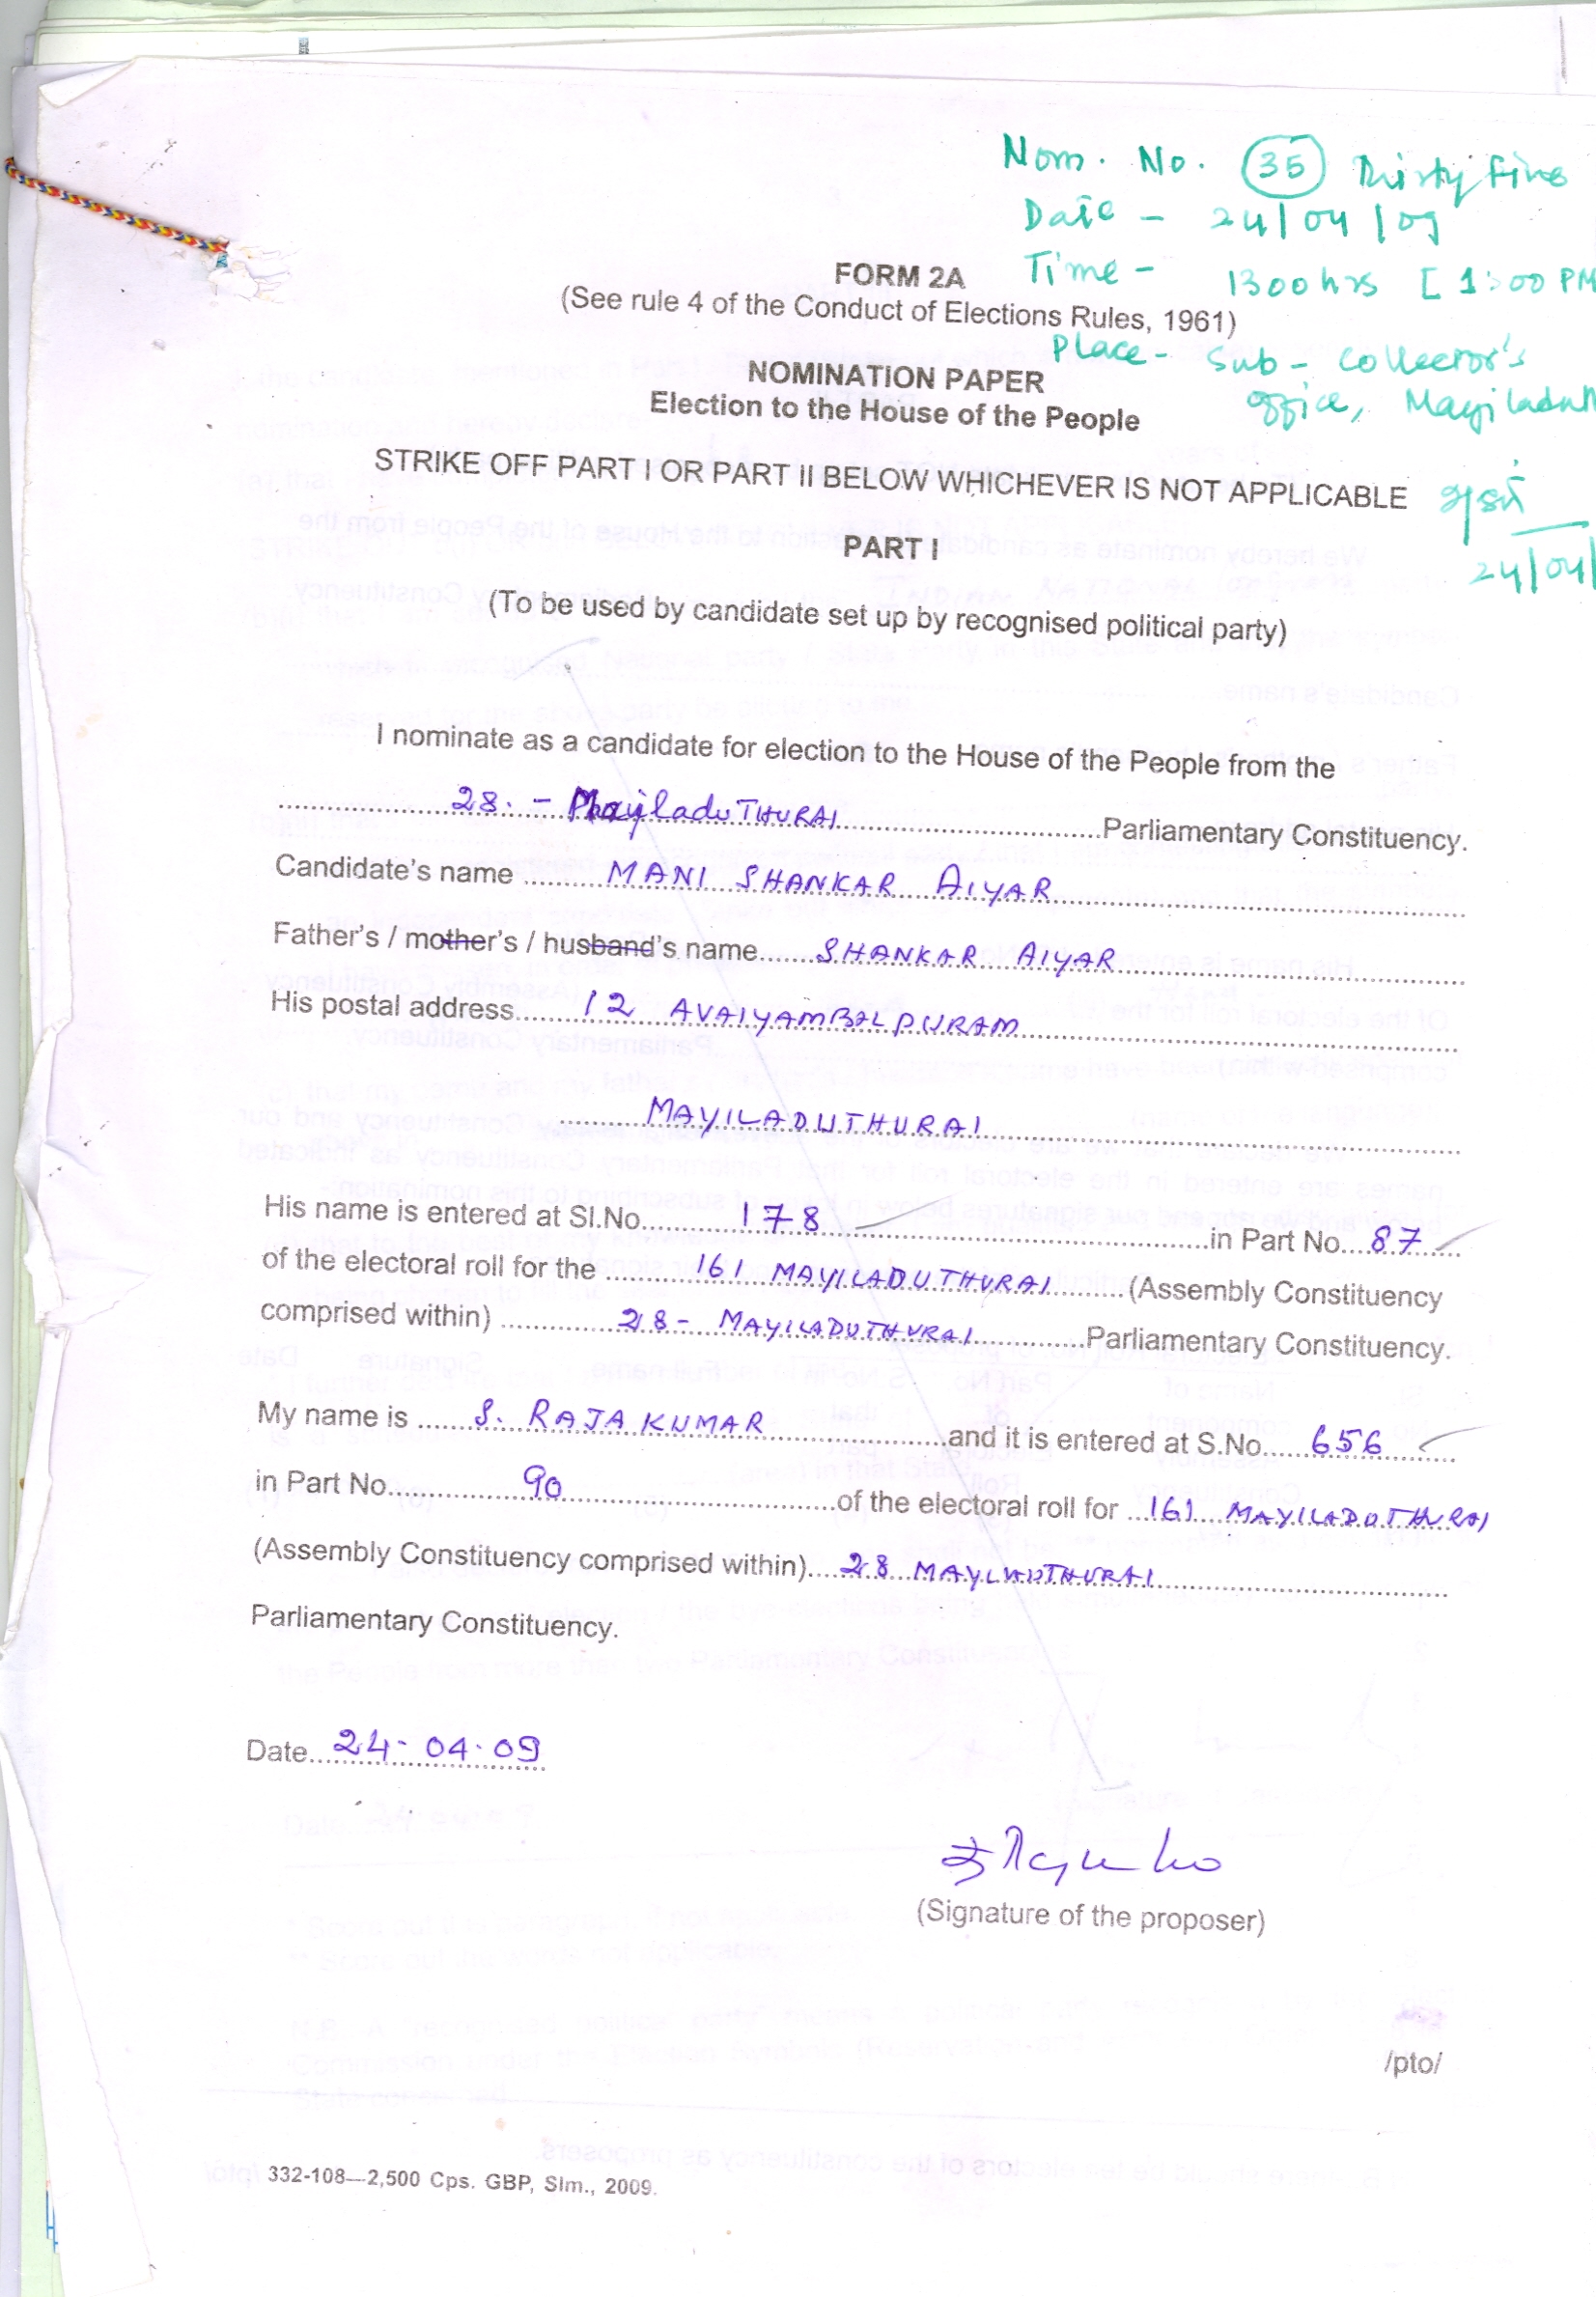 Nom. No. 35 Thirty Five
Date - 24/04/09
Time - 1300 hrs [1:00 PM
Place - Sub - Collector's
office, Mayiladuth
24/04/
FORM 2A
(See rule 4 of the Conduct of Elections Rules, 1961)
NOMINATION PAPER
Election to the House of the People
STRIKE OFF PART I OR PART II BELOW WHICHEVER IS NOT APPLICABLE
PART I
(To be used by candidate set up by recognised political party)
I nominate as a candidate for election to the House of the People from the
28. - MayiladuTHURAI Parliamentary Constituency.
Candidate's name MANI SHANKAR AIYAR
Father's / mother's / husband's name SHANKAR AIYAR
His postal address 12 AVAIYAMBALPURAM
MAYILADUTHURAI
His name is entered at Sl.No. 178 in Part No. 87
of the electoral roll for the 161 MAYILADUTHURAI (Assembly Constituency
comprised within) 28 - MAYILADUTHURAI Parliamentary Constituency.
My name is S. RAJAKUMAR and it is entered at S.No. 656
in Part No. 90 of the electoral roll for 161 MAYILADUTHURAI
(Assembly Constituency comprised within) 28 MAYLADUTHURAI
Parliamentary Constituency.
Date 24-04-09
(Signature of the proposer)
/pto/
332-108—2,500 Cps. GBP, Slm., 2009.